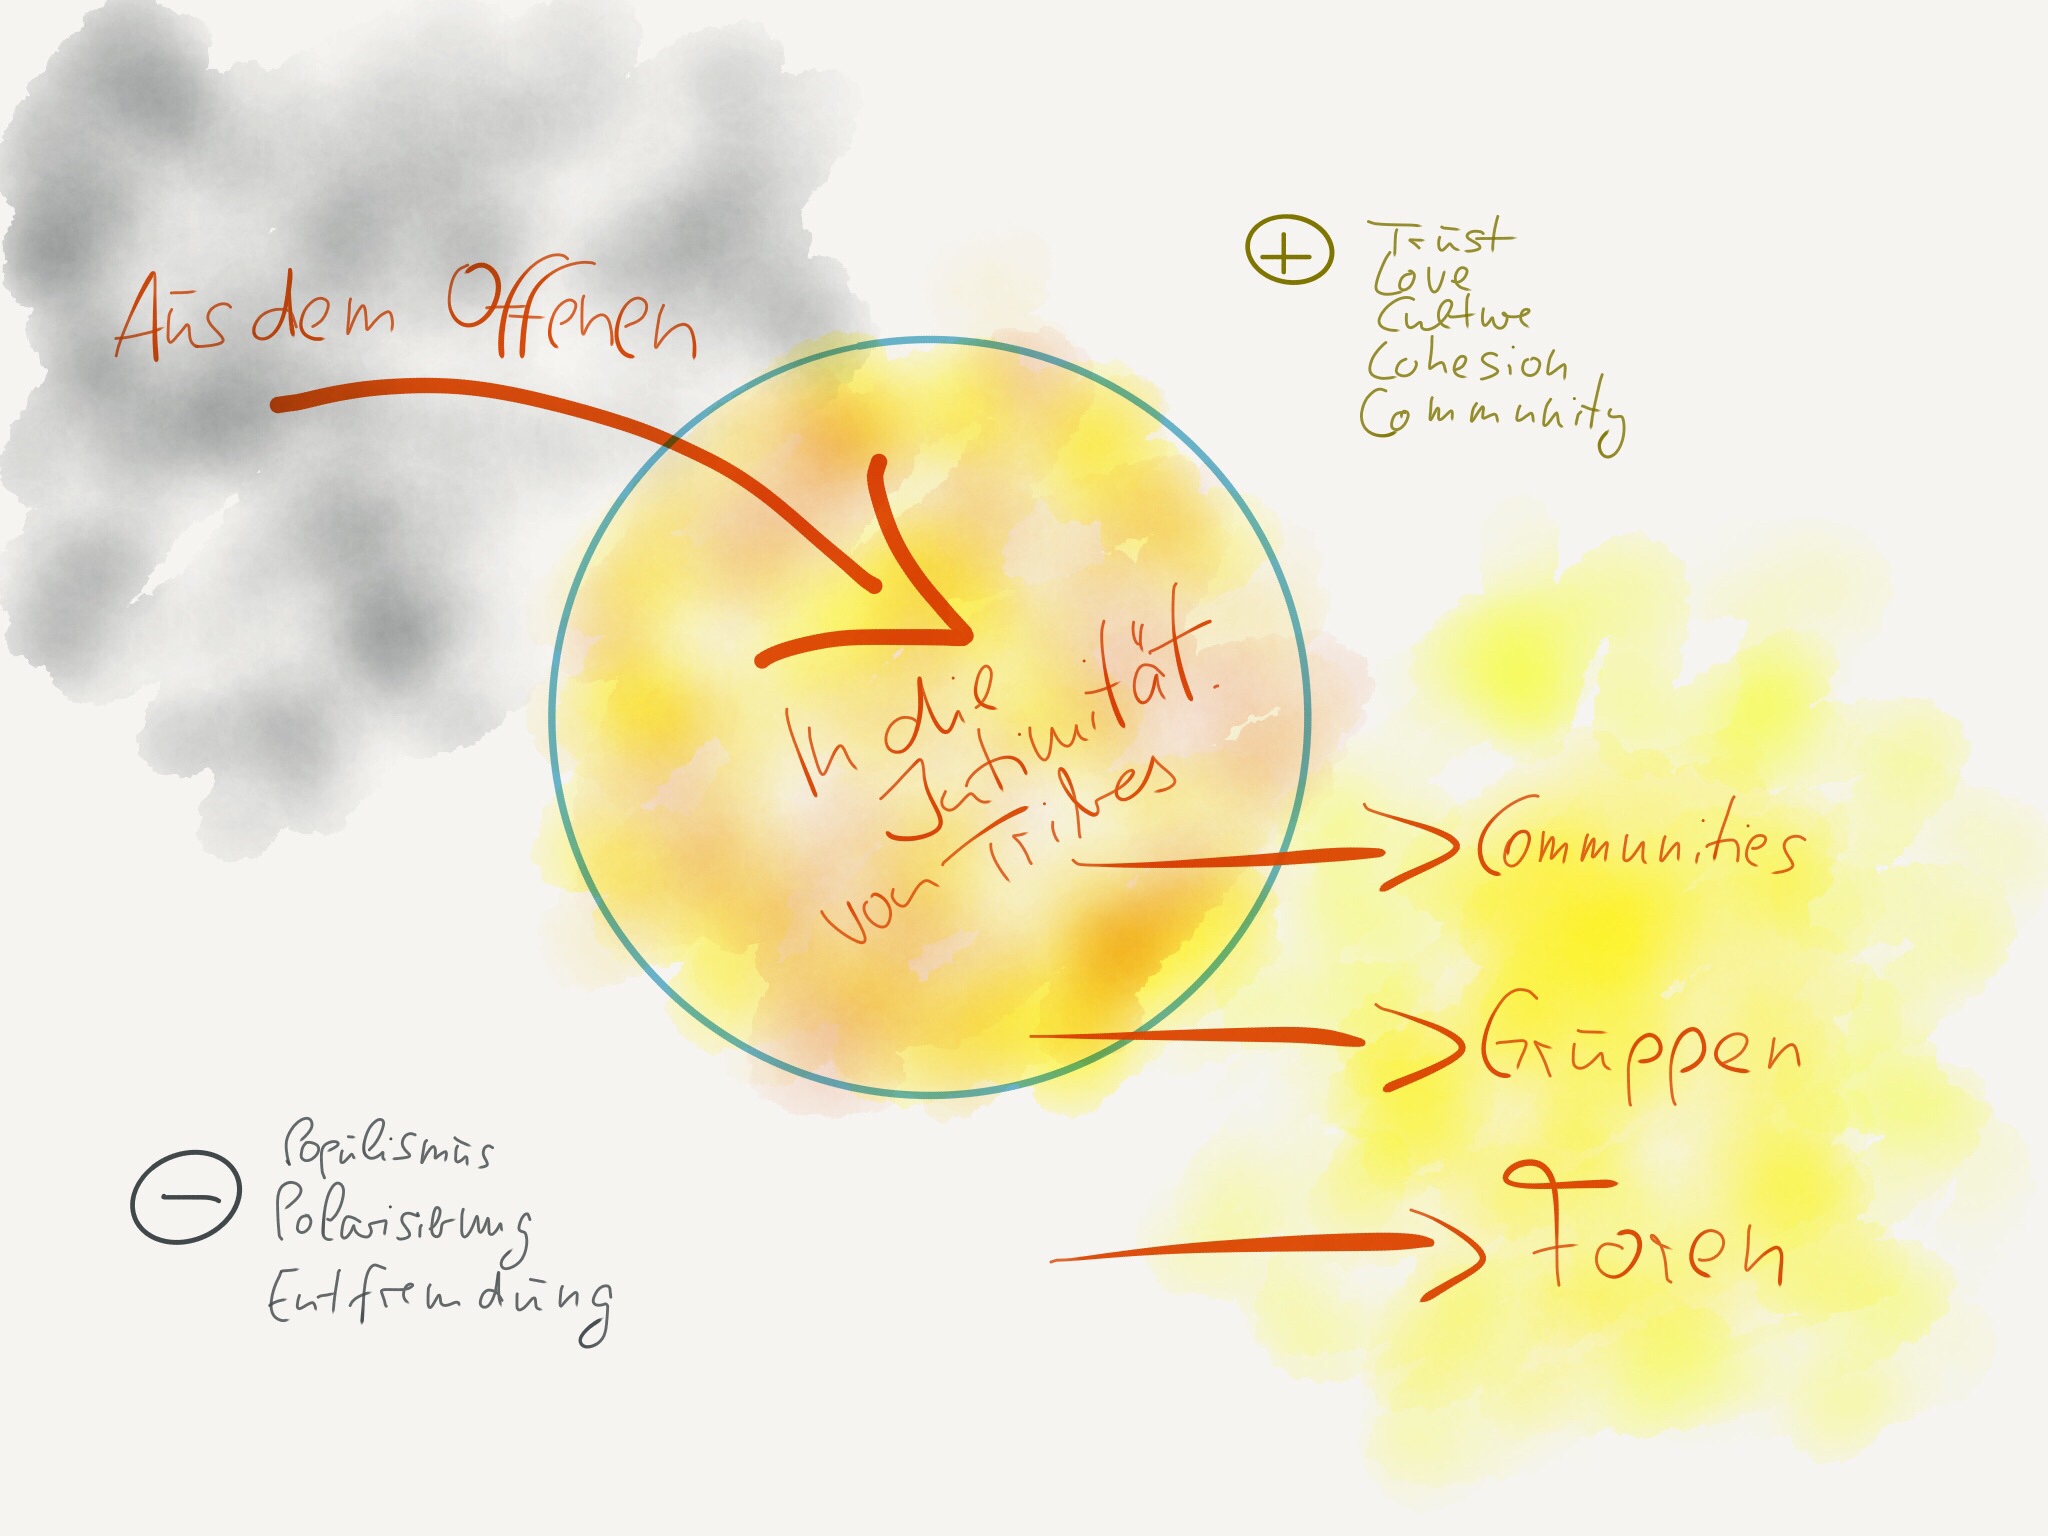 Aus dem Offenen
In die
Intimität.
von Tribes
+
Trust
Love
Culture
Cohesion
Community
Communities
Gruppen
Foren
−
Populismus
Polarisierung
Entfremdung